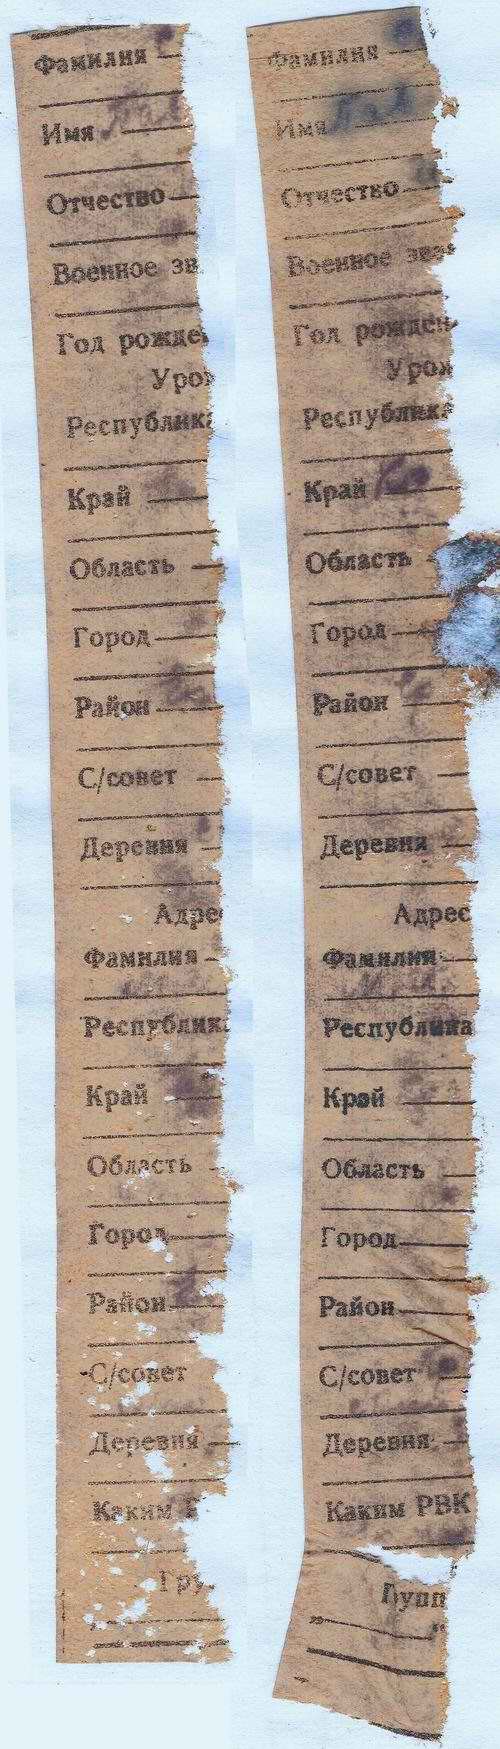 Фамилия
Имя
Отчество
Военное зв
Год рожде
Урож
Республика
Край
Область
Город
Район
С/совет
Деревня
Адрес
Фамилия
Республика
Край
Область
Город
Район
С/совет
Деревня
Каким
Гру
Фамилия
Имя
Отчество
Военное зва
Год рожден
Урож
Республика
Край
Область
Город
Район
С/совет
Деревня
Адрес
Фамилия
Республика
Край
Область
Город
Район
С/совет
Деревня
Каким РВК
Групп